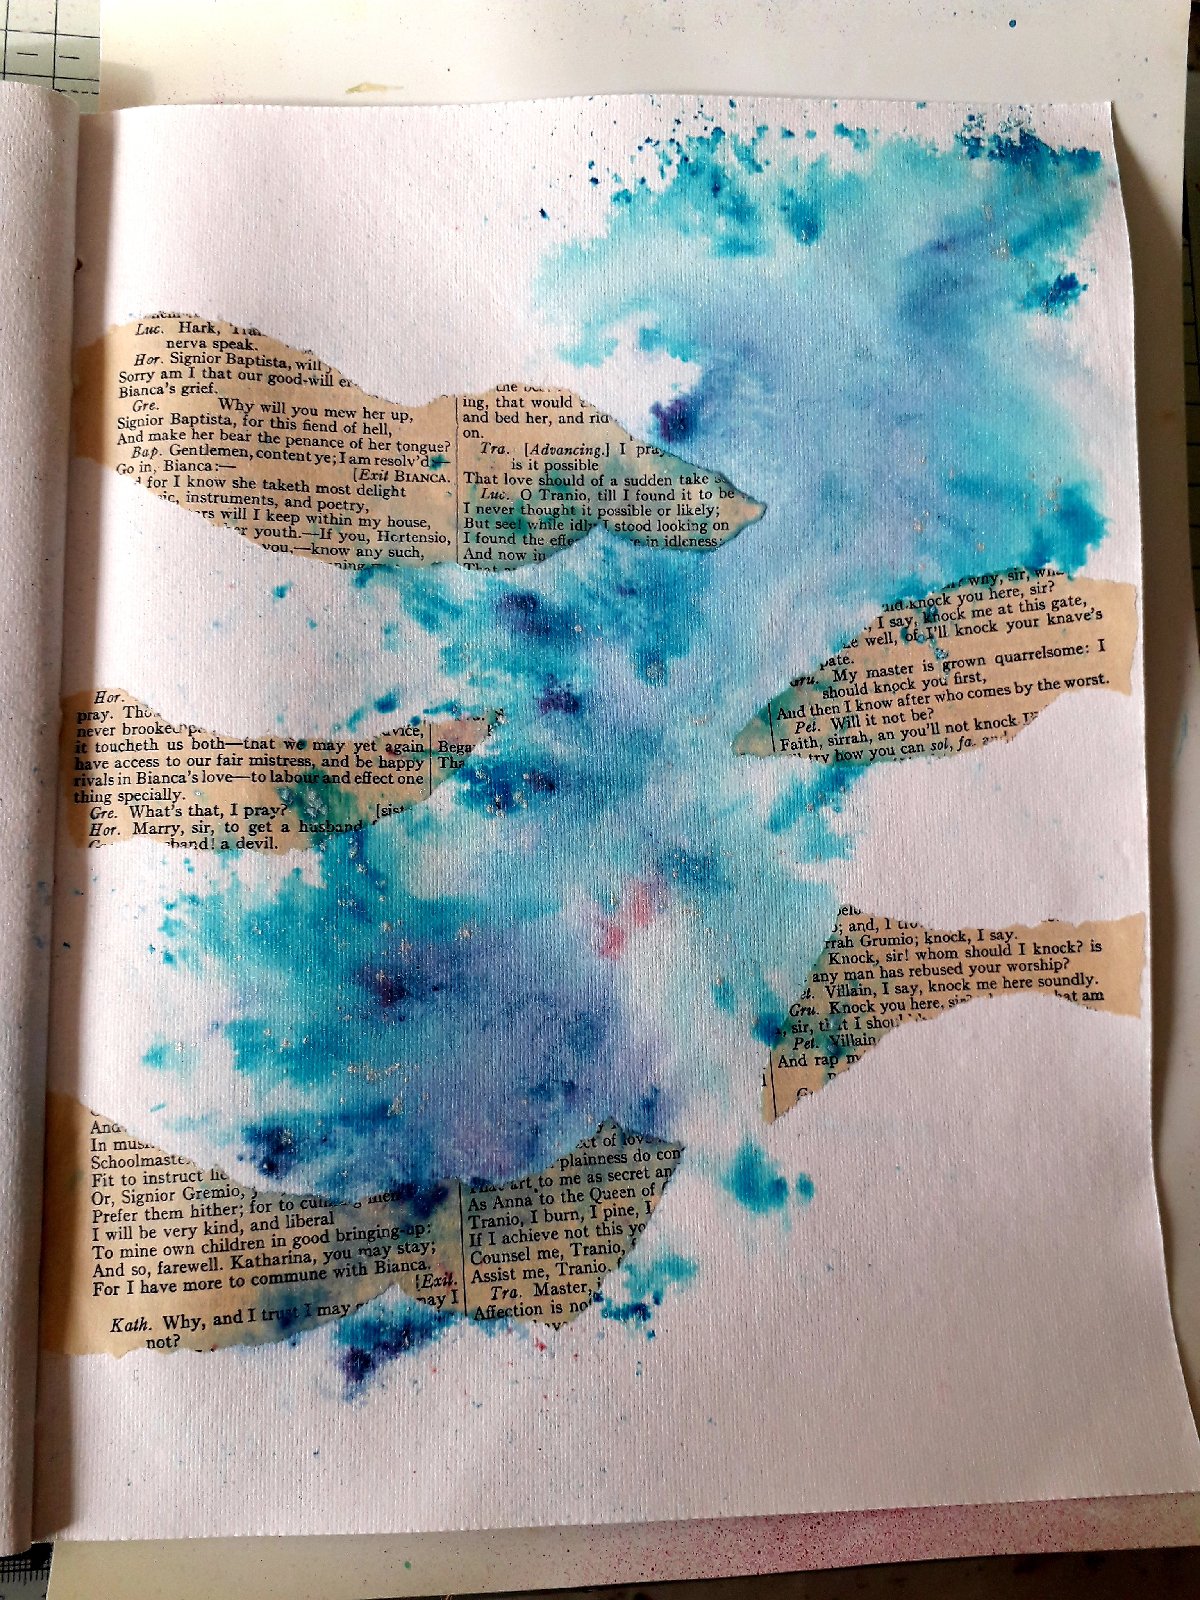 Luc. Hark,
nerva speak.
Hor. Signior Baptista, will
Sorry am I that our good-will
Bianca's grief.
Gre. Why will you mew her up,
Signior Baptista, for this fiend of hell,
And make her bear the penance of her tongue?
Bap. Gentlemen, content ye; I am resolv'd:—
Go in, Bianca:—
[Exit BIANCA.
for I know she taketh most delight
instruments, and poetry,
will I keep within my house,
youth.—If you, Hortensio,
you,—know any such,
the
ing, that would
and bed her, and
on.
Tra. [Advancing.] I pray
is it possible
That love should of a sudden take
Luc. O Tranio, till I found it to be
I never thought it possible or likely;
But see! while idly I stood looking on
I found the in idleness:
And now in
why, sir,
knock you here, sir?
I say, knock me at this gate,
well, or I'll knock your knave's
pate.
Gru. My master is grown quarrelsome: I
should knock you first,
And then I know after who comes by the worst.
Pet. Will it not be?
Faith, sirrah, an you'll not knock
try how you can sol, fa,
Hor.
pray.
never brooked
it toucheth us both—that we may yet again
have access to our fair mistress, and be happy
rivals in Bianca's love—to labour and effect one
thing specially.
Gre. What's that, I pray?
Hor. Marry, sir, to get a husband
a devil.
and, I
Grumio; knock, I say.
Knock, sir! whom should I knock? is
any man has rebused your worship?
Villain, I say, knock me here soundly.
Gru. Knock you here,
am
sir, that I
Pet. Villain
And rap
And
In
Fit to instruct
Or, Signior Gremio,
Prefer them hither; for to
I will be very kind, and liberal
To mine own children in good bringing-up:
And so, farewell. Katharina, you may stay;
For I have more to commune with Bianca.
[Exit.
Kath. Why, and I trust I may may I
not?
of love
plainness do
art to me as secret
As Anna to the Queen of
Tranio, I burn, I pine, I
If I achieve not this
Counsel me, Tranio,
Assist me, Tranio.
Tra. Master,
Affection is